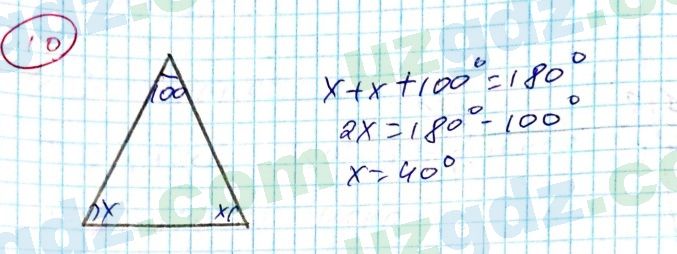 10
100
x x
x+x+100°=180°
2x=180°-100°
x=40°
uzgdz.com